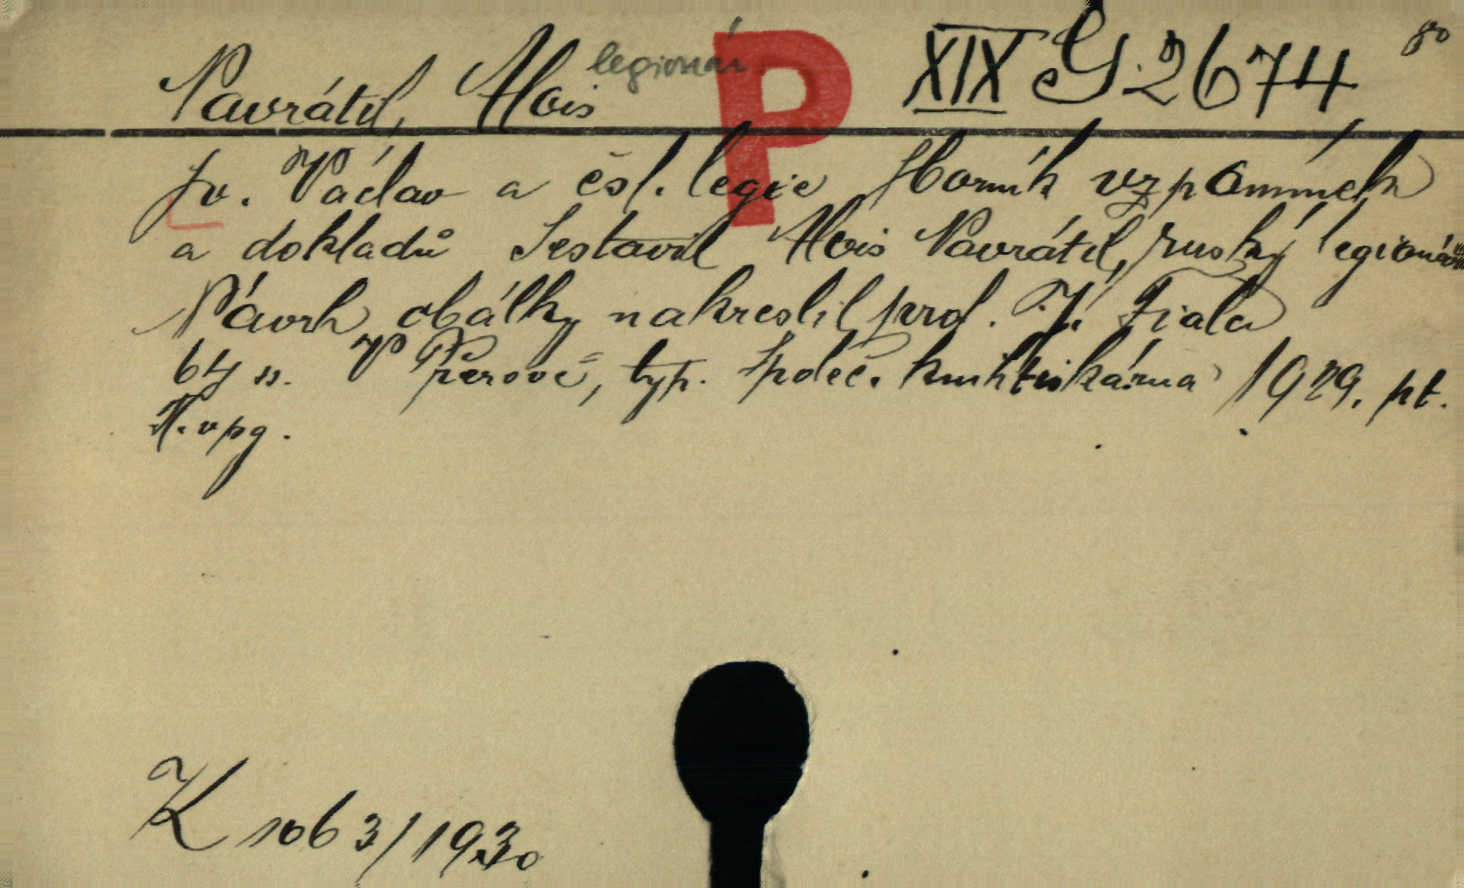 Navrátil, Alois legionář P XIX G 2674 8°
Sv. Václav a čsl. legie Horník vzpomínek
a dokladů Sestavil Alois Navrátil, ruský legionář
Návrh obálky nakreslil prof. J. Fiala
64 s. V Přerově, typ. Společ. knihtiskárna 1929. pt.
K 1063/1930